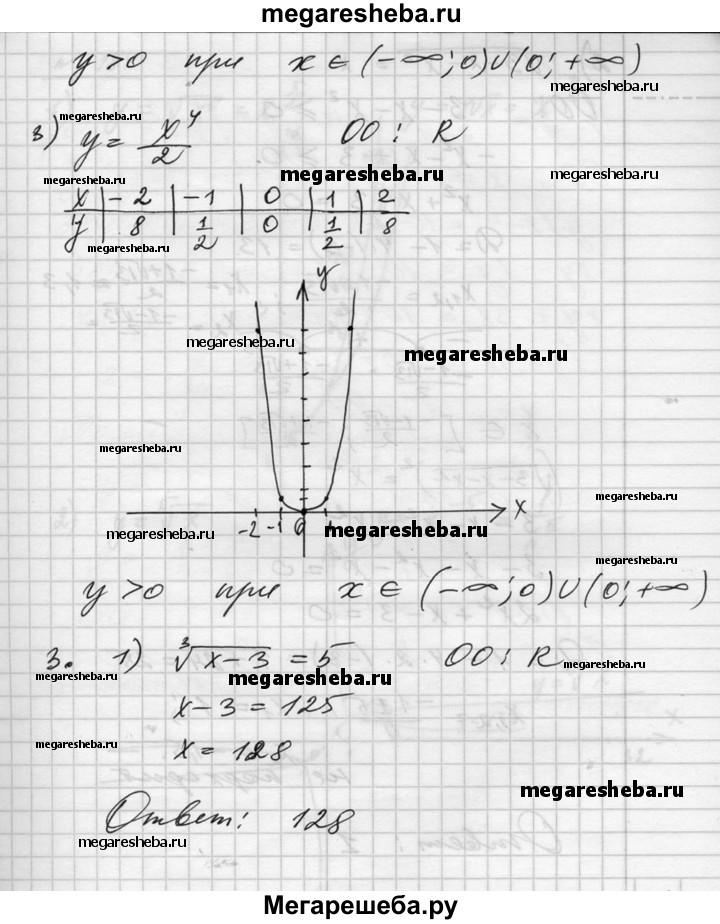 megaresheba.ru
y>0 при x ∈ (-∞; 0) ∪ (0; +∞)
megaresheba.ru
megaresheba.ru
3) y = x⁴/2 ОО: R
megaresheba.ru
megaresheba.ru
x | -2 | -1 | 0 | 1 | 2
y | 8 | 1/2 | 0 | 1/2 | 8
megaresheba.ru
y
megaresheba.ru
megaresheba.ru
megaresheba.ru
megaresheba.ru
-2 -1 0 1 x
megaresheba.ru
megaresheba.ru
megaresheba.ru
y>0 при x ∈ (-∞; 0) ∪ (0; +∞)
3. 1) ∛(x-3) = 5 ОО: R
megaresheba.ru
megaresheba.ru
megaresheba.ru
x-3 = 125
x = 128
megaresheba.ru
megaresheba.ru
Ответ: 128
megaresheba.ru
Мегарешеба.ру